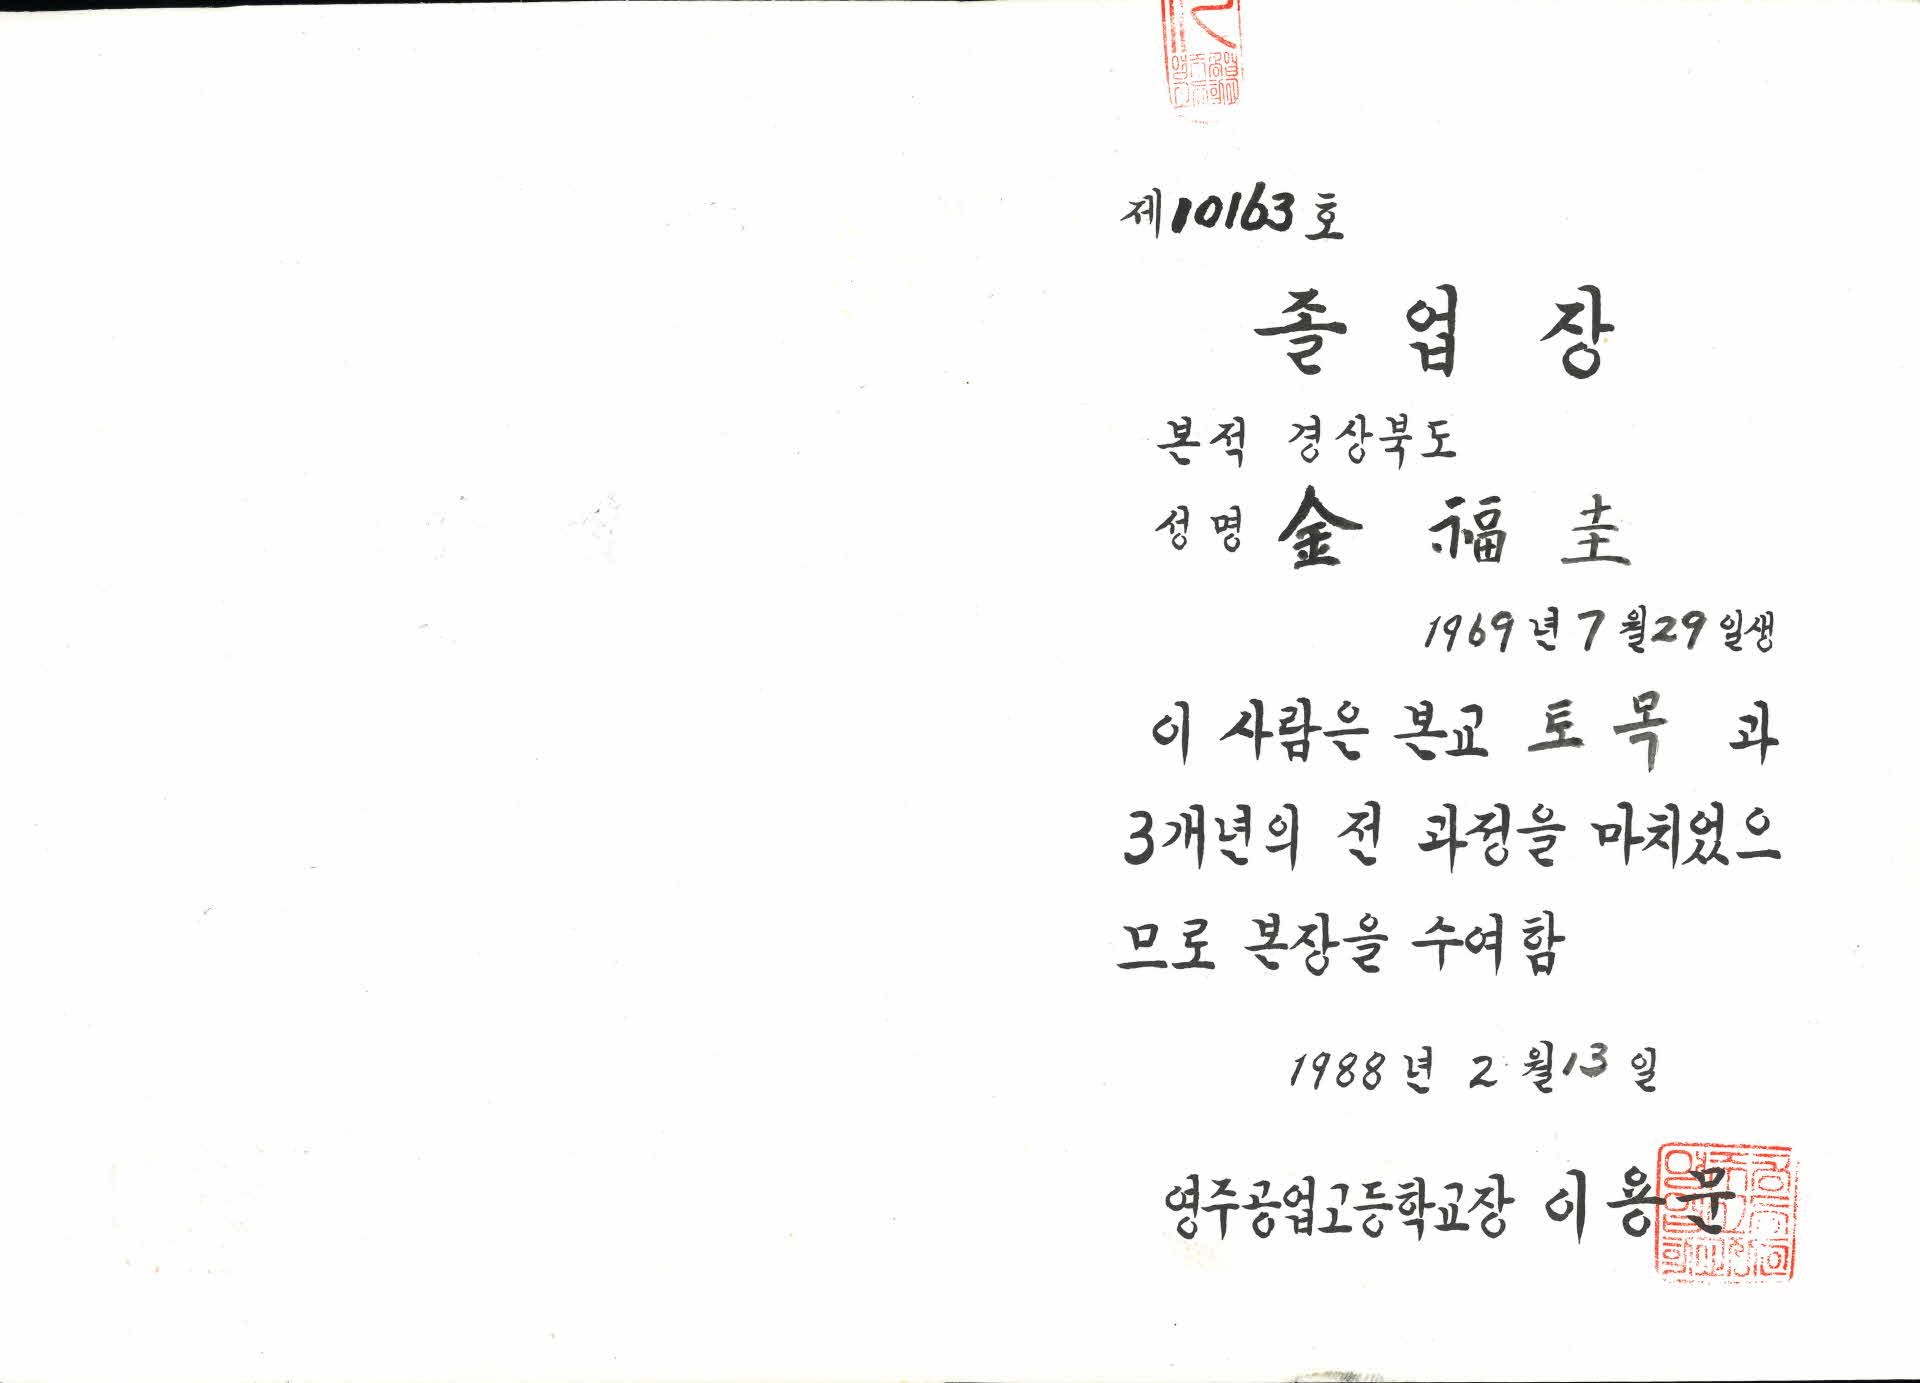 제10163호
졸업장
본적 경상북도
성명 金福圭
1969년 7월 29일생
이 사람은 본교 토목과
3개년의 전 과정을 마치었으
므로 본장을 수여함
1988년 2월 13일
영주공업고등학교장 이용문